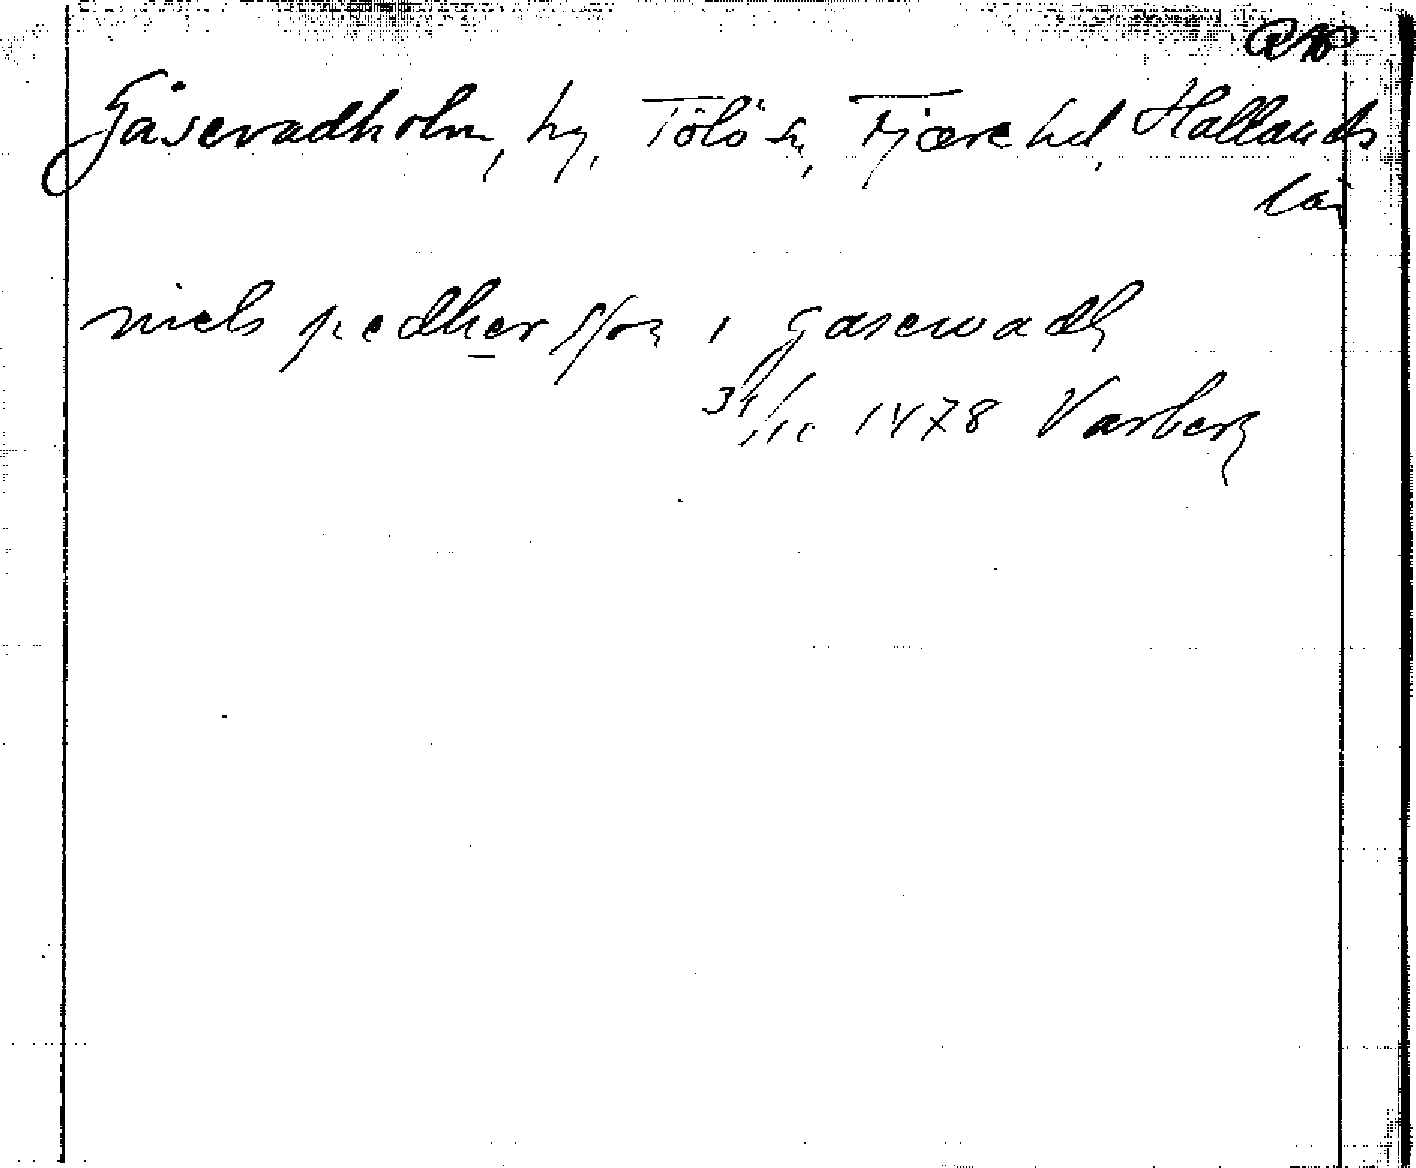 Gåsevadholm, hg, Tölö sn, Fjære hd, Hallands
län
niels pedherssøn i gasewadh
1478 Varberg